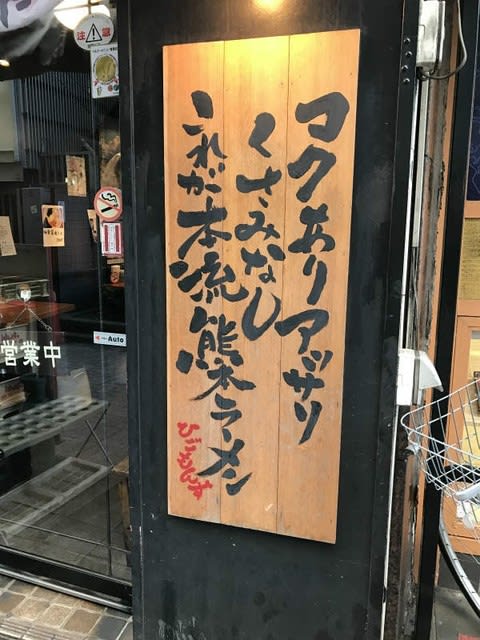 コクありアッサリ
くさみなし
これが本流熊本ラーメン
ひごもんず
注意
←Auto
営業中